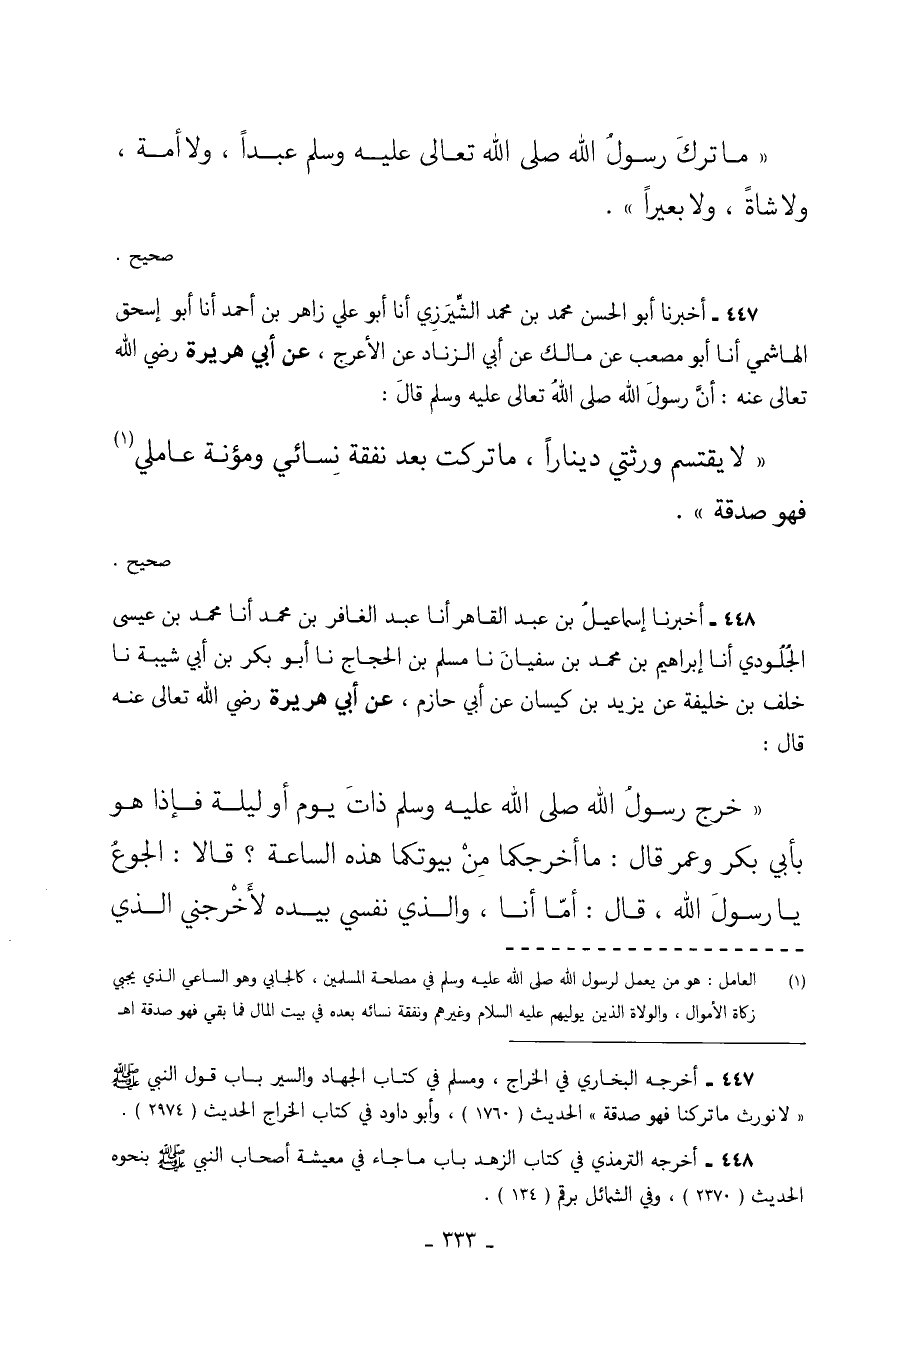 « ماتركَ رسولُ الله صلى الله تعالى عليه وسلم عبداً ، ولاأمة ،
ولاشاةً ، ولابعيراً » .
صحيح .
٤٤٧ ـ أخبرنا أبو الحسن محمد بن محمد الشِّيَرَزِي أنا أبو علي زاهر بن أحمد أنا أبو إسحق
الهاشمي أنا أبو مصعب عن مالك عن أبي الزناد عن الأعرج ، عن أبي هريرة رضي الله
تعالى عنه : أنَّ رسولَ الله صلى اللهُ تعالى عليه وسلم قالَ :
« لايقتسم ورثتي ديناراً ، ماتركت بعد نفقة نِسائي ومؤنة عاملي(١)
فهو صدقة » .
صحيح .
٤٤٨ ـ أخبرنا إسماعيلُ بن عبد القاهر أنا عبد الغافر بن محمد أنا محمد بن عيسى
الجُلُودي أنا إبراهيم بن محمد بن سفيانَ نا مسلم بن الحجاج نا أبو بكر بن أبي شيبة نا
خلف بن خليفة عن يزيد بن كيسان عن أبي حازم ، عن أبي هريرة رضي الله تعالى عنه
قال :
« خرج رسولُ الله صلى الله عليه وسلم ذاتَ يوم أو ليلة فإذا هو
بأبي بكر وعمر قال : ماأخرجكما مِنْ بيوتكما هذه الساعة ؟ قالا : الجوعُ
يارسولَ الله ، قال : أمّا أنا ، والذي نفسي بيده لأَخْرجني الذي
(١) العامل : هو من يعمل لرسول الله صلى الله عليه وسلم في مصلحة المسلمين ، كالجابي وهو الساعي الذي يجبي
زكاة الأموال ، والولاة الذين يوليهم عليه السلام وغيرهم ونفقة نسائه بعده في بيت المال فما بقي فهو صدقة اهـ
٤٤٧ ـ أخرجه البخاري في الخراج ، ومسلم في كتاب الجهاد والسير باب قول النبي ﷺ
« لانورث ماتركنا فهو صدقة » الحديث ( ١٧٦٠ ) ، وأبو داود في كتاب الخراج الحديث ( ٢٩٧٤ ) .
٤٤٨ ـ أخرجه الترمذي في كتاب الزهد باب ماجاء في معيشة أصحاب النبي ﷺ بنحوه
الحديث ( ٢٣٧٠ ) ، وفي الشمائل برقم ( ١٣٤ ) .
ـ ٣٣٣ ـ